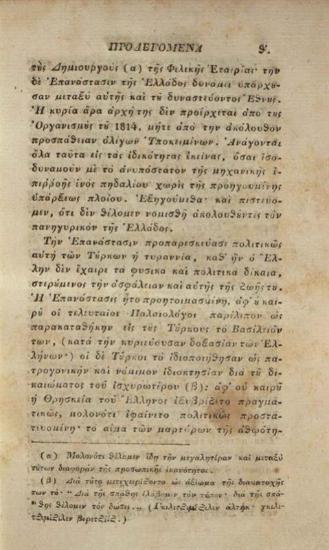 ΠΡΟΛΕΓΟΜΕΝΑ
τοὺς Δημιουργοὺς (α) τῆς Φιλικῆς Ἑταιρίας· τὴν
δὲ Ἐπανάστασιν τῆς Ἑλλάδος δυνάμει ὑπάρχου-
σαν μεταξὺ αὐτῆς καὶ τοῦ δυναστεύοντος Ἔθνους.
Ἡ κυρία ἄρα ἀρχή της δὲν προέρχεται ἀπὸ τοὺς
Ὀργανισμοὺς τοῦ 1814, μήτε ἀπὸ τὴν ἀκόλουθον
προσπάθειαν ὀλίγων Ὑποκειμένων. Ἀνάγονται
ὅλα ταῦτα εἰς τὰς ἰδικότητας ἐκείνας, ὅσαι ἰσο-
δυναμοῦν μὲ τὸ ἀνυπόστατον τῆς μηχανικῆς ἐ-
πιῤῥοῆς ἑνὸς πηδαλίου χωρὶς τῆς προηγουμένης
ὑπάρξεως πλοίου. Ἐξηγούμεθα· καὶ πιστεύο-
μεν, ὅτι δὲν θέλομεν νομισθῆ ἀκολουθοῦντες τὸν
πανηγυρικὸν τῆς Ἑλλάδος.
Τὴν Ἐπανάστασιν προπαρεσκεύασε πολιτικῶς
αὐτὴ τῶν Τούρκων ἡ τυραννία, καθ' ἣν ὁ Ἕλ-
λην δὲν ἔχαιρε τὰ φυσικὰ καὶ πολιτικὰ δίκαια,
στερούμενος τὴν ἀσφάλειαν καὶ αὐτῆς τῆς ζωῆς του.
Ἡ Ἐπανάστασις ἦτο προητοιμασμένη, ἀφ' οὗ και-
ροῦ οἱ τελευταῖοι Παλαιολόγοι παρέλιπον ὡς
παρακαταθήκην εἰς τοὺς Τούρκους τὸ Βασίλειόν
των, (κατὰ τὴν κυριεύουσαν δοξασίαν τῶν Ἑλ-
λήνων·) οἱ δὲ Τοῦρκοι τὸ ἰδιοποιήθησαν ὡς πα-
τρογονικὴν καὶ νόμιμον ἰδιοκτησίαν διὰ τοῦ δι-
καιώματος τοῦ ἰσχυροτέρου (β): ἀφ' οὗ καιροῦ
ἡ Θρησκεία τοῦ Ἕλληνος ἐξυβρίζετο πραγμα-
τικῶς, μολονότι ἐφαίνετο πολιτικῶς προστα-
τευομένη· τὸ αἷμα τῶν μαρτύρων τῆς ἀφθότη-
(α) Μολονότι θέλομεν ἰδῆ τὴν μεγαλητέραν καὶ μεταξὺ
τούτων διαφορὰν τῆς προσωπικῆς ἱκανότητος.
(β) Διὰ τοῦτο μετεχειρίζοντο ὡς ἀξίωμα τῆς διακατοχῆς
των τὸ· "Διὰ τῆς σπάθης ἐλάβομεν τὸν τόπον· διὰ τῆς σπά-
θης θέλομεν τὸν δώσει